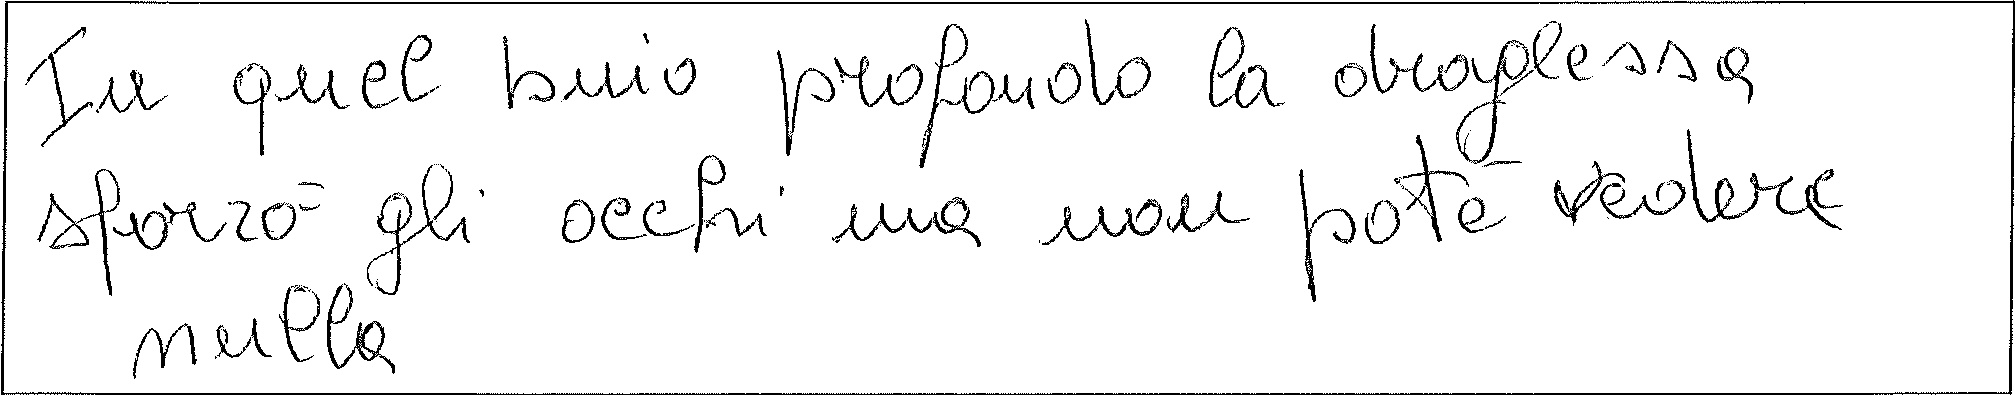 In quel buio profondo la draglessa
sforzò gli occhi ma non poté vedere
nulla